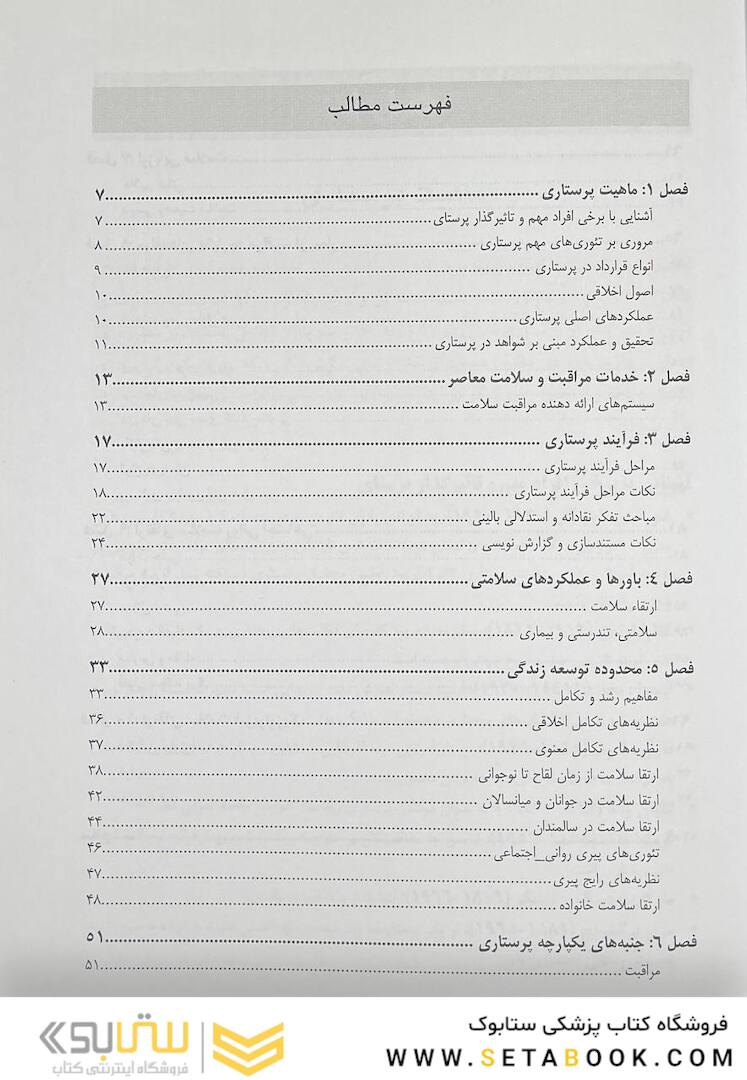 فهرست مطالب
فصل ۱: ماهیت پرستاری ........ ۷
آشنایی با برخی افراد مهم و تاثیرگذار پرستای ........ ۷
مروری بر تئوری‌های مهم پرستاری ........ ۸
انواع قرارداد در پرستاری ........ ۹
اصول اخلاقی ........ ۱۰
عملکردهای اصلی پرستاری ........ ۱۰
تحقیق و عملکرد مبنی بر شواهد در پرستاری ........ ۱۱
فصل ۲: خدمات مراقبت و سلامت معاصر ........ ۱۳
سیستم‌های ارائه دهنده مراقبت سلامت ........ ۱۳
فصل ۳: فرآیند پرستاری ........ ۱۷
مراحل فرآیند پرستاری ........ ۱۷
نکات مراحل فرآیند پرستاری ........ ۱۸
مباحث تفکر نقادانه و استدلالی بالینی ........ ۲۲
نکات مستندسازی و گزارش نویسی ........ ۲۴
فصل ۴: باورها و عملکردهای سلامتی ........ ۲۷
ارتقاء سلامت ........ ۲۷
سلامتی، تندرستی و بیماری ........ ۲۸
فصل ۵: محدوده توسعه زندگی ........ ۳۳
مفاهیم رشد و تکامل ........ ۳۳
نظریه‌های تکامل اخلاقی ........ ۳۶
نظریه‌های تکامل معنوی ........ ۳۷
ارتقا سلامت از زمان لقاح تا نوجوانی ........ ۳۸
ارتقا سلامت در جوانان و میانسالان ........ ۴۲
ارتقا سلامت در سالمندان ........ ۴۴
تئوری‌های پیری روانی_اجتماعی ........ ۴۶
نظریه‌های رایج پیری ........ ۴۷
ارتقا سلامت خانواده ........ ۴۸
فصل ۶: جنبه‌های یکپارچه پرستاری ........ ۵۱
مراقبت ........ ۵۱
فروشگاه کتاب پزشکی ستابوک
WWW.SETABOOK.COM
ستابوک
فروشگاه اینترنتی کتاب